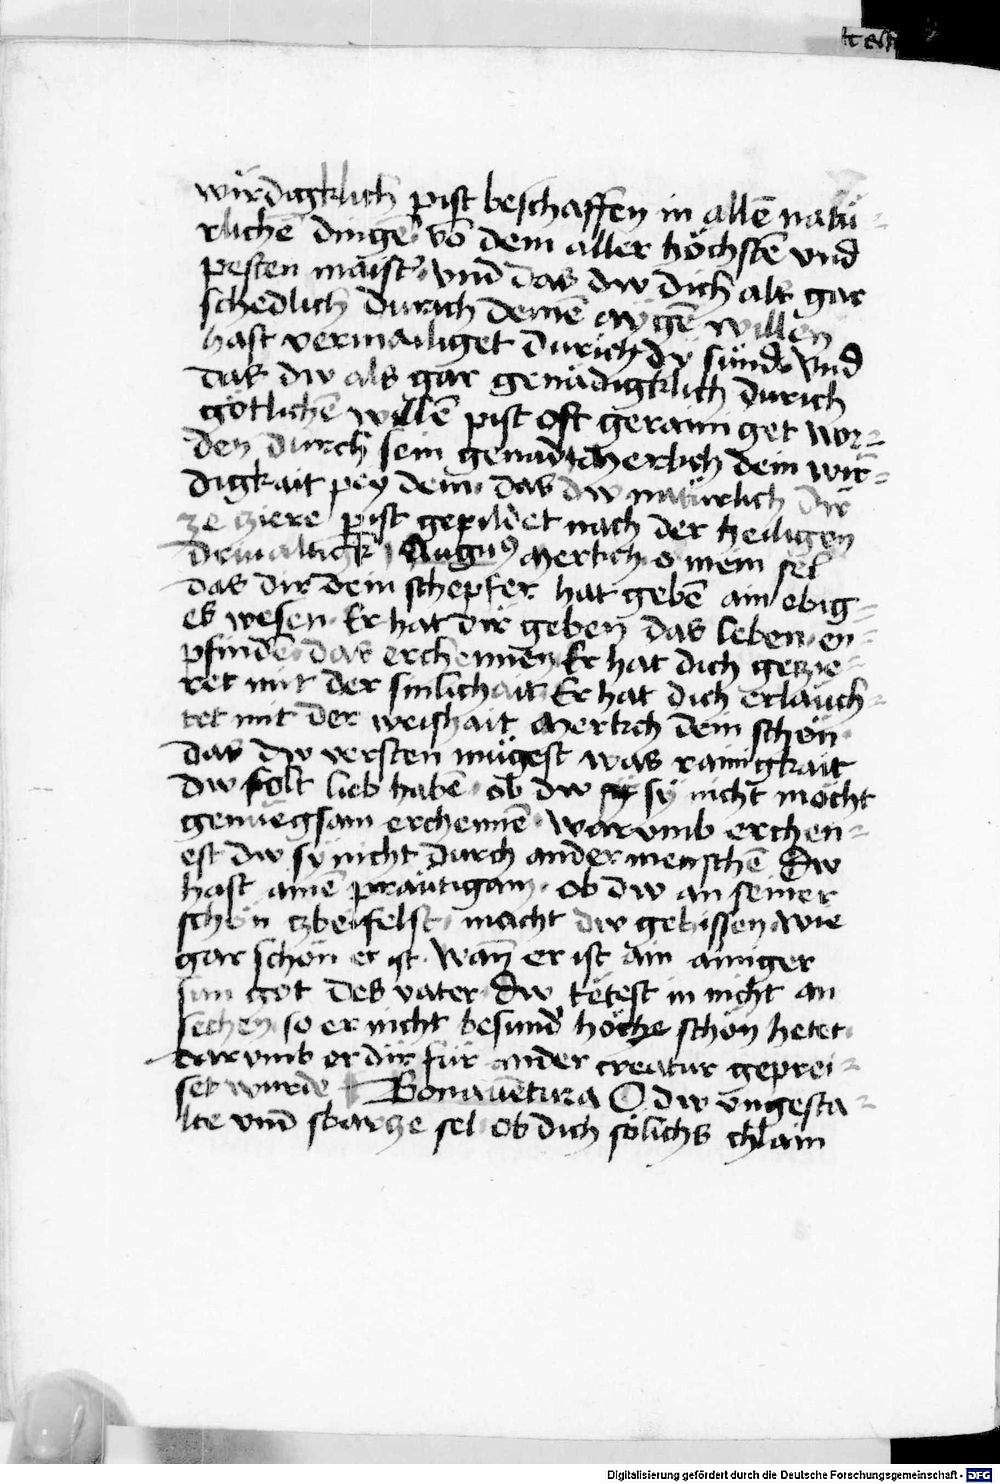 würdigklich pist beschaffen in allē natü-
rlichē dingē vō dem aller höchstē vnd
pesten maist' vnd das dw dich als gar
schedlich durich deinē aygē willen
hast vermailiget durich dy sünd vnd
das dw als gar genädigklich durich
götlichē willē pist oft gerainiget wor-
den durch sein genad Merkch dein wir-
digkait pey dem das dw natürlich dir
ze ziere pist gepildet nach der heiligen
driualtick Augu9 Merkch o mein sel
das dir dein schepfer hat gebē ain ebig-
es wesen Er hat dir geben das leben en-
pfindē das erchennen Er hat dich gezie-
ret mit der sinlichait Er hat dich erlauch-
tet mit der weishait Merkch dein schön
das dw versten mügest was rainigkait
dw solt lieb habē ob dw sy nicht möcht
genuegsam erchennē warumb erchen-
est dw sy nicht durch ander menschē Dw
hast ainē präutigam ob dw an seiner
schön czbeifelst macht dw gebissen wie
gar schön er ist wan er ist ain ainiger
sun got des vater Dw tetest in nicht an
sechen so er nicht besund' höche schön hetet
darumb er dir für ander creatur geprei-
set wurde Bonauētura O dw vngesta-
lte vnd sbarze sel ob dich sölichs chlain
Digitalisierung gefördert durch die Deutsche Forschungsgemeinschaft - DFG